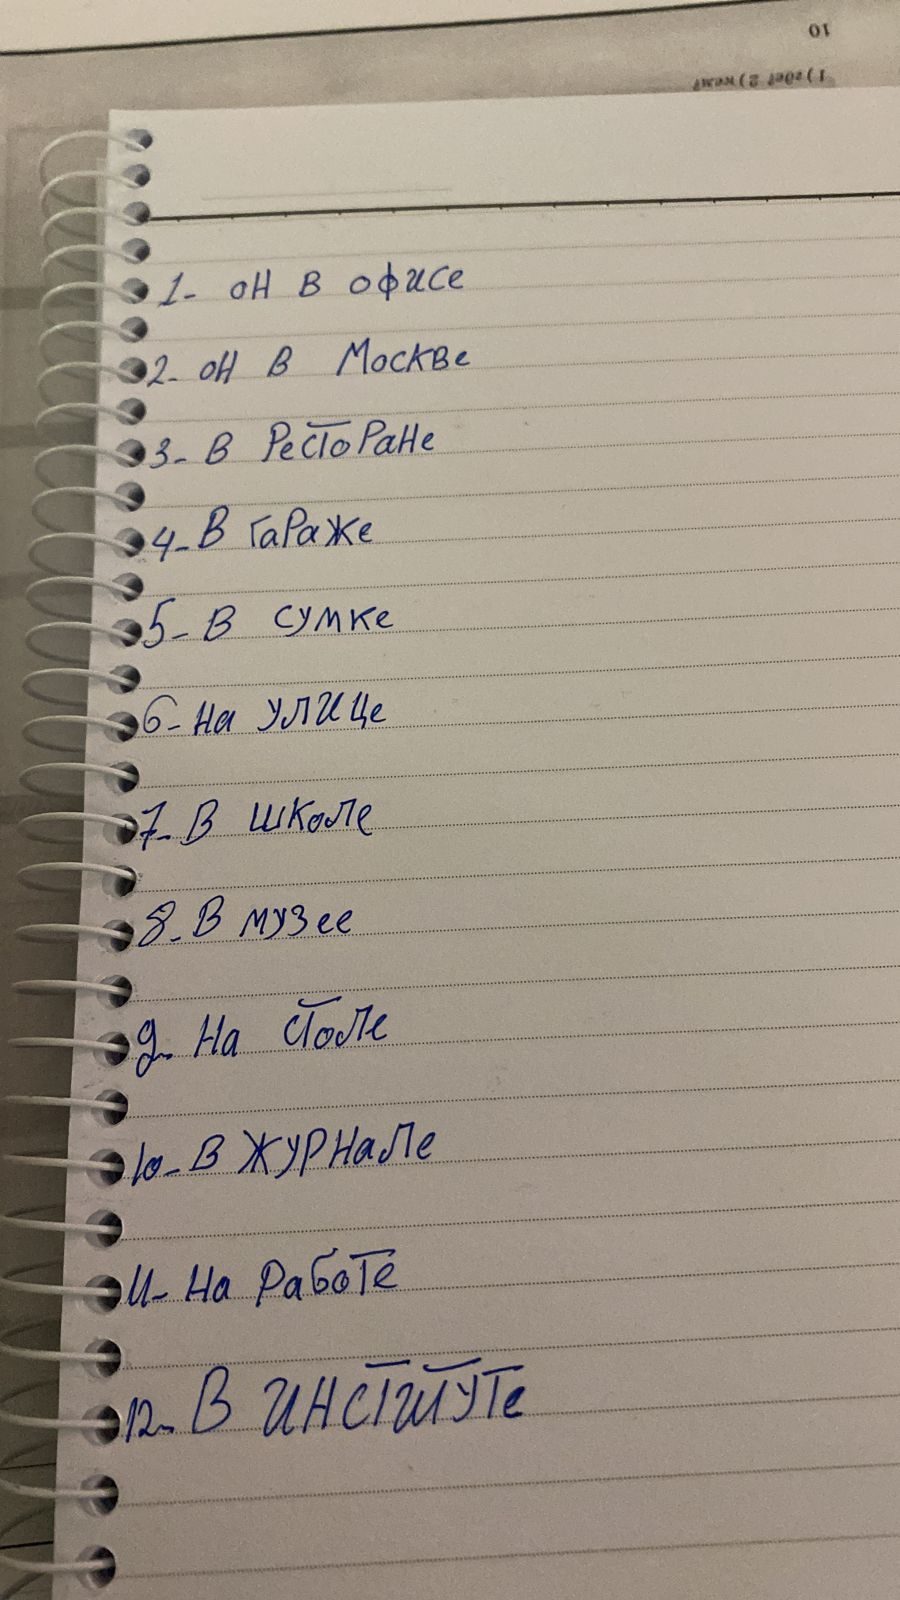 10
1) где? 2) кем?
1- он в офисе
2- он в Москве
3- в ресторане
4- В гараже
5- В сумке
6- на улице
7- В школе
8- В музее
9- На столе
10- В журнале
11- На работе
12- В институте